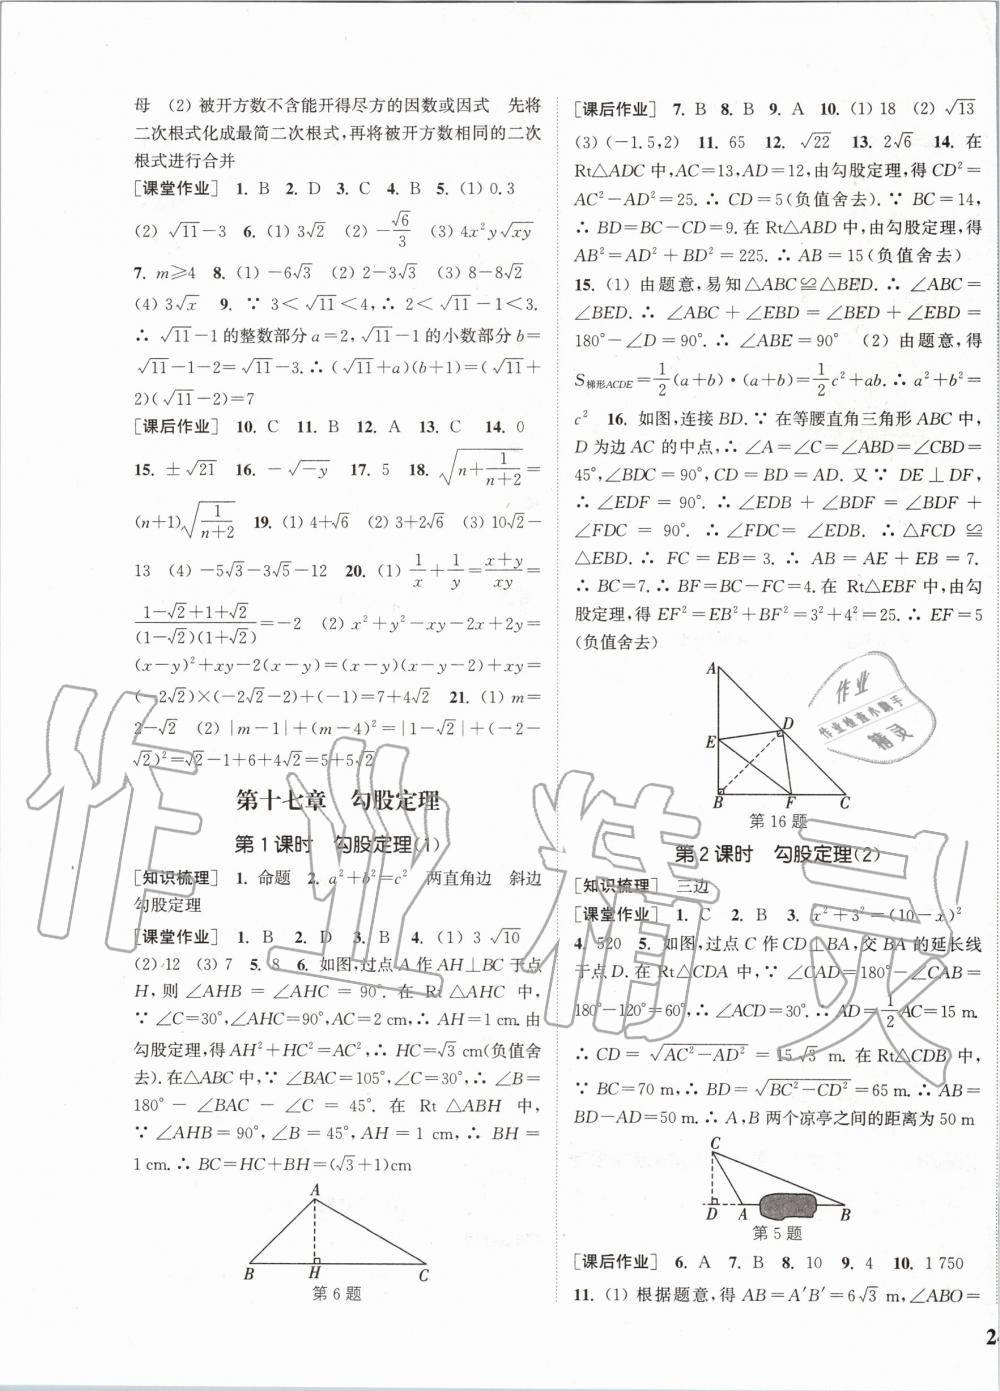 母 (2) 被开方数不含能开得尽方的因数或因式 先将
二次根式化成最简二次根式,再将被开方数相同的二次
根式进行合并
[课堂作业] 1. B 2. D 3. C 4. B 5. (1) 0.3
(2) √11－3 6. (1) 3√2 (2) －√6/3 (3) 4x²y√xy
7. m≥4 8. (1) －6√3 (2) 2－3√3 (3) 8－8√2
(4) 3√x 9. ∵ 3＜√11＜4,∴ 2＜√11－1＜3.
∴ √11－1的整数部分a＝2,√11－1的小数部分b＝
√11－1－2＝√11－3.∴(√11＋a)(b＋1)＝(√11＋
2)(√11－2)＝7
[课后作业] 10. C 11. B 12. A 13. C 14. 0
15. ±√21 16. －√－y 17. 5 18. √(n＋1/(n＋2))＝
(n＋1)√(1/(n＋2)) 19. (1) 4＋√6 (2) 3＋2√6 (3) 10√2－
13 (4) －5√3－3√5－12 20. (1) 1/x＋1/y＝(x＋y)/xy＝
(1－√2＋1＋√2)/((1－√2)(1＋√2))＝－2 (2) x²＋y²－xy－2x＋2y＝
(x－y)²＋xy－2(x－y)＝(x－y)(x－y－2)＋xy＝
(－2√2)×(－2√2－2)＋(－1)＝7＋4√2 21. (1) m＝
2－√2 (2) |m－1|＋(m－4)²＝|1－√2|＋(－2－
√2)²＝√2－1＋6＋4√2＝5＋5√2
第十七章 勾股定理
第1课时 勾股定理(1)
[知识梳理] 1. 命题 2. a²＋b²＝c² 两直角边 斜边
勾股定理
[课堂作业] 1. B 2. D 3. B 4. (1) 3 √10
(2) 12 (3) 7 5. 8 6. 如图,过点A作AH⊥BC于点
H,则∠AHB＝∠AHC＝90°.在Rt△AHC中,
∵ ∠C＝30°,∠AHC＝90°,AC＝2 cm,∴ AH＝1 cm.由
勾股定理,得AH²＋HC²＝AC²,∴ HC＝√3 cm(负值舍
去).在△ABC中,∵ ∠BAC＝105°,∠C＝30°,∴ ∠B＝
180°－∠BAC－∠C＝45°.在Rt△ABH中,
∵ ∠AHB＝90°,∠B＝45°,AH＝1 cm,∴ BH＝
1 cm.∴ BC＝HC＋BH＝(√3＋1)cm
A
B H C
第6题
[课后作业] 7. B 8. B 9. A 10. (1) 18 (2) √13
(3) (－1.5,2) 11. 65 12. √22 13. 2√6 14. 在
Rt△ADC中,AC＝13,AD＝12,由勾股定理,得CD²＝
AC²－AD²＝25.∴ CD＝5(负值舍去).∵ BC＝14,
∴ BD＝BC－CD＝9.在Rt△ABD中,由勾股定理,得
AB²＝AD²＋BD²＝225.∴ AB＝15(负值舍去)
15. (1) 由题意,易知△ABC≌△BED.∴ ∠ABC＝
∠BED.∴ ∠ABC＋∠EBD＝∠BED＋∠EBD＝
180°－∠D＝90°.∴ ∠ABE＝90° (2) 由题意,得
S梯形ACDE＝1/2(a＋b)·(a＋b)＝1/2c²＋ab.∴ a²＋b²＝
c² 16. 如图,连接BD.∵ 在等腰直角三角形ABC中,
D为边AC的中点,∴ ∠A＝∠C＝∠ABD＝∠CBD＝
45°,∠BDC＝90°,CD＝BD＝AD.又∵ DE⊥DF,
∴ ∠EDF＝90°.∴ ∠EDB＋∠BDF＝∠BDF＋
∠FDC＝90°.∴ ∠FDC＝∠EDB.∴ △FCD≌
△EBD.∴ FC＝EB＝3.∴ AB＝AE＋EB＝7.
∴ BC＝7.∴ BF＝BC－FC＝4.在Rt△EBF中,由勾
股定理,得EF²＝EB²＋BF²＝3²＋4²＝25.∴ EF＝5
(负值舍去)
A
D
E
B F C
第16题
第2课时 勾股定理(2)
[知识梳理] 三边
[课堂作业] 1. C 2. B 3. x²＋3²＝(10－x)²
4. 520 5. 如图,过点C作CD⊥BA,交BA的延长线
于点D.在Rt△CDA中,∵ ∠CAD＝180°－∠CAB＝
180°－120°＝60°,∴ ∠ACD＝30°.∴ AD＝1/2AC＝15 m.
∴ CD＝√(AC²－AD²)＝15√3 m.在Rt△CDB中,
∵ BC＝70 m,∴ BD＝√(BC²－CD²)＝65 m.∴ AB＝
BD－AD＝50 m.∴ A,B两个凉亭之间的距离为50 m
C
D A B
第5题
[课后作业] 6. A 7. B 8. 10 9. 4 10. 1 750
11. (1) 根据题意,得AB＝A′B′＝6√3 m,∠ABO＝
作业精灵
作业
作业检查小助手
精灵